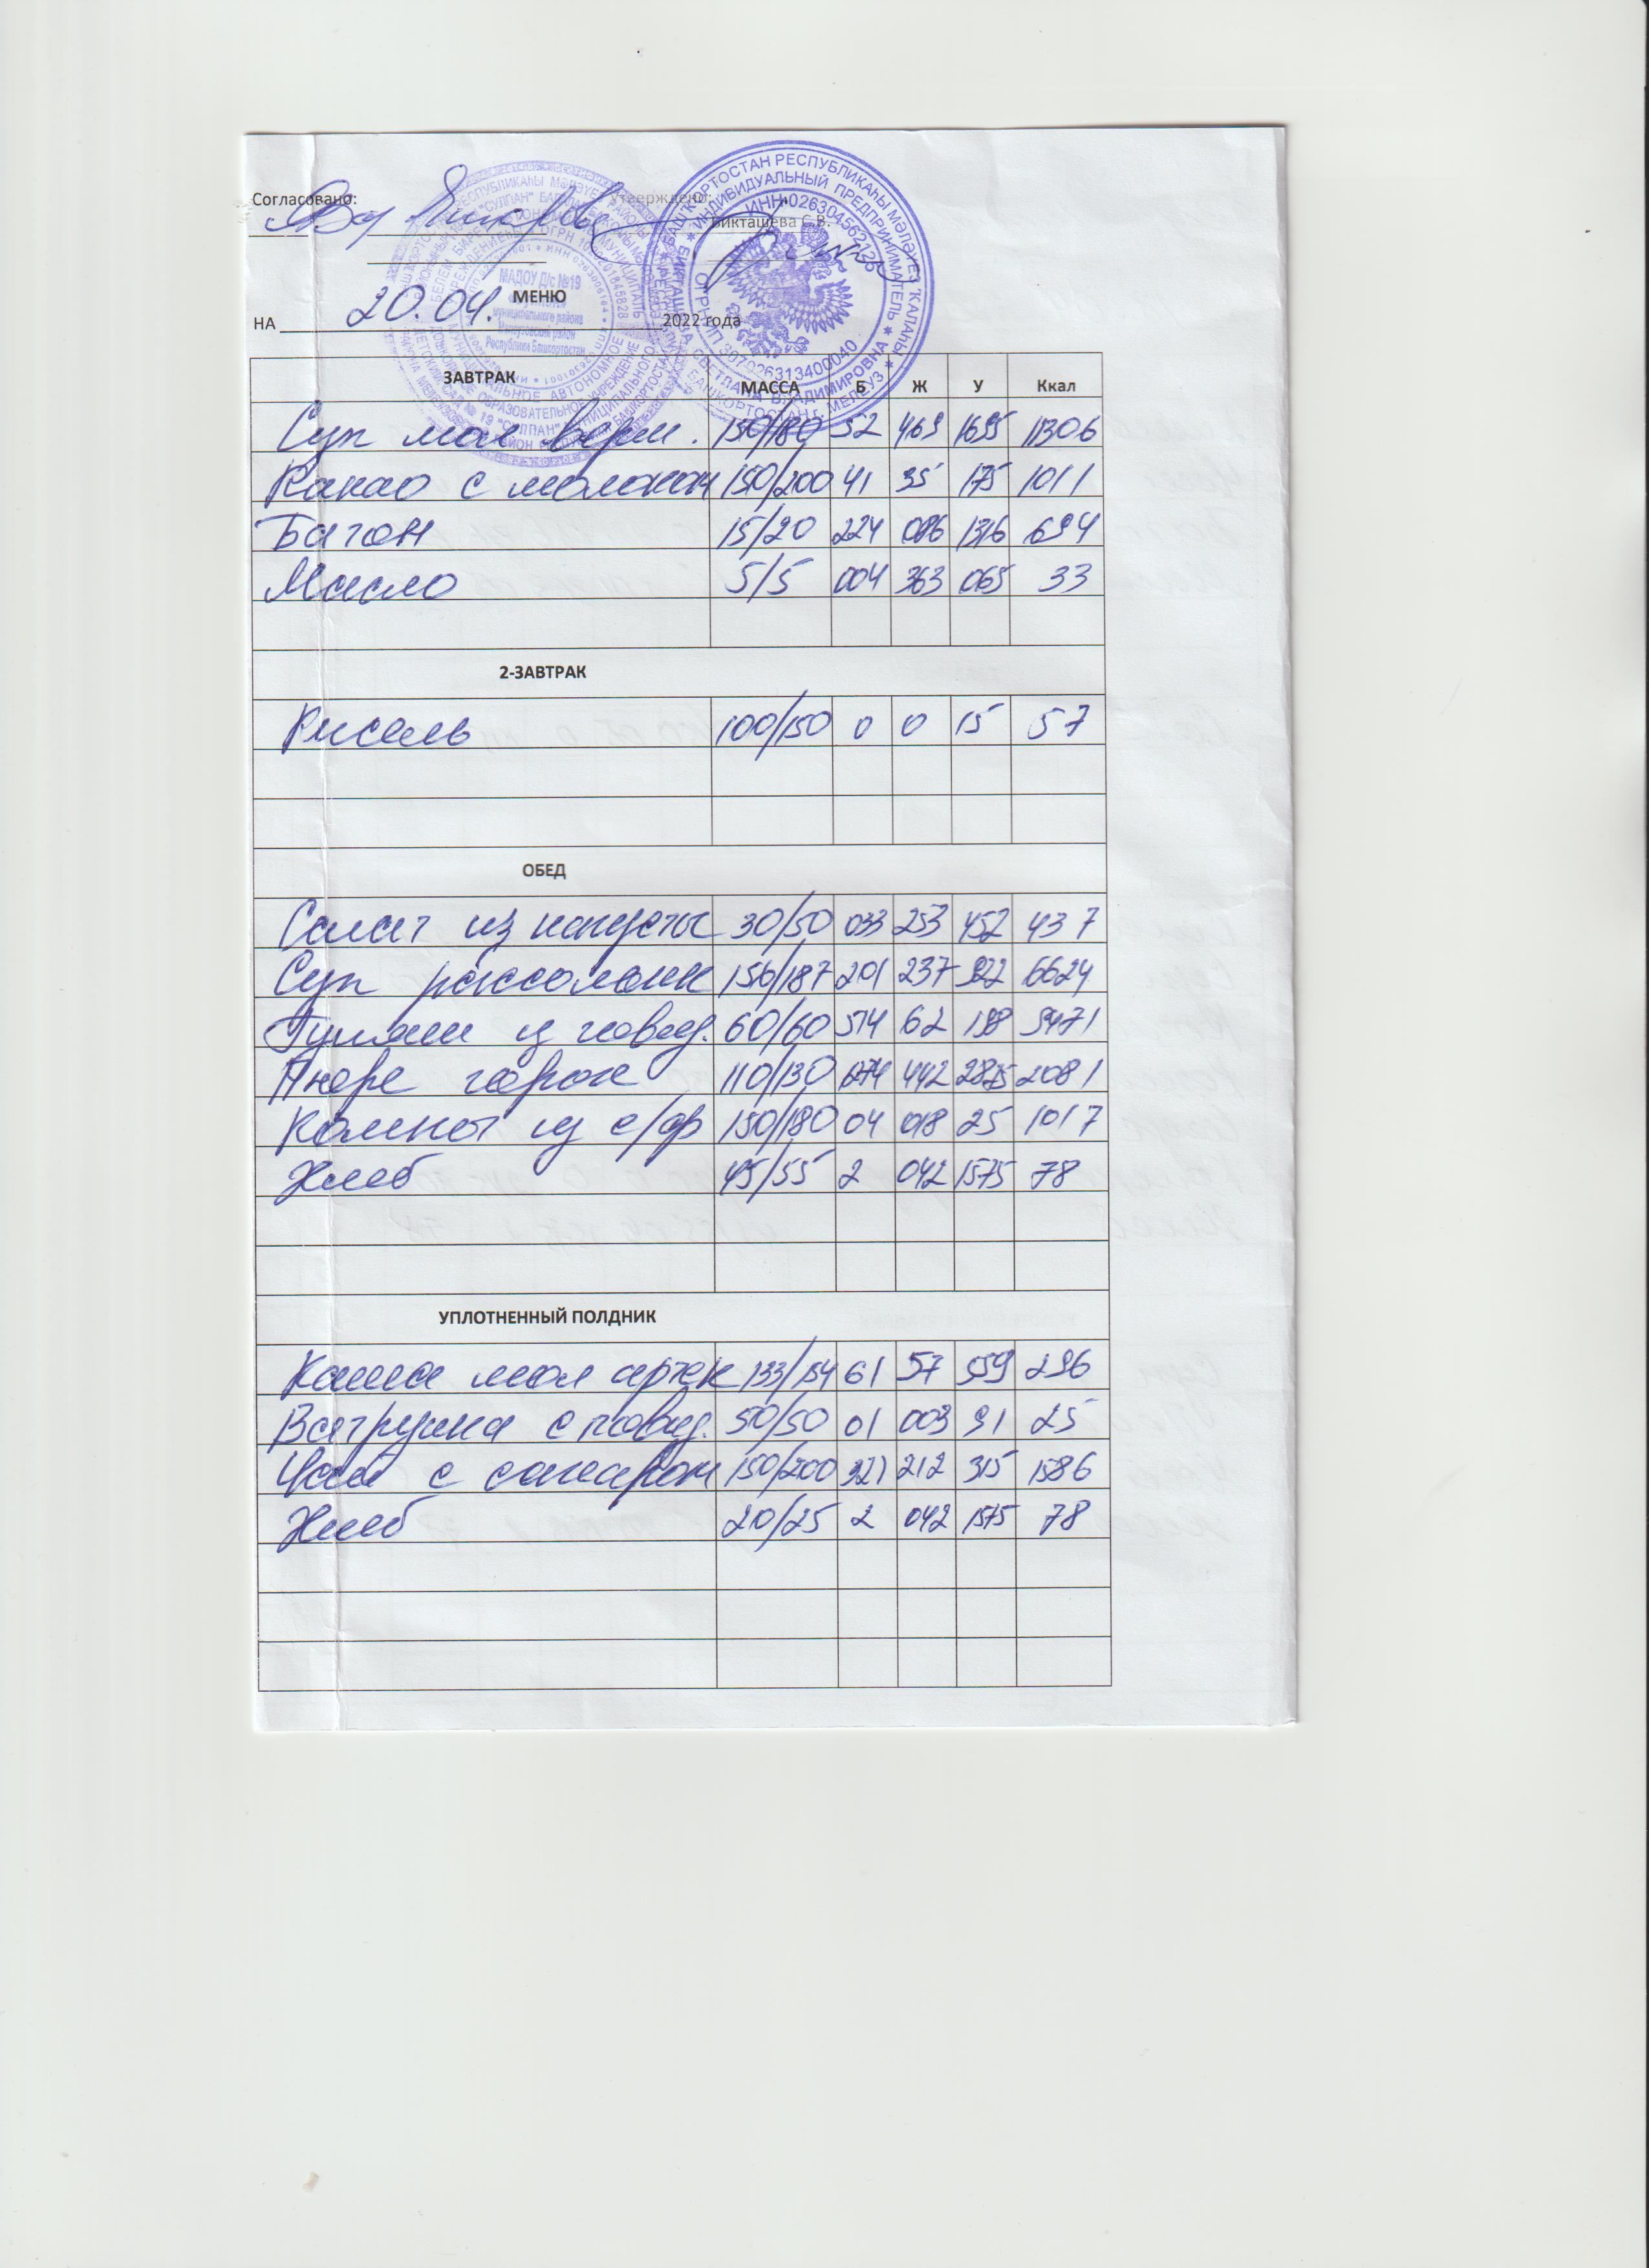 Согласовано: Утверждено:
Бикташева С.В.
МЕНЮ
НА 20.04. 2022 года
ЗАВТРАК МАССА Б Ж У Ккал
Суп мол верм. 150/180 52 469 1695 11306
Какао с молоком 150/200 41 35 175 1011
Батон 15/20 224 086 1316 694
Масло 5/5 004 363 065 33
2-ЗАВТРАК
Кисель 100/150 0 0 15 57
ОБЕД
Салат из капусты 30/50 033 253 452 437
Суп рассольник 150/187 201 237 922 6624
Гуляш из говяд. 60/60 514 62 198 9471
Пюре горох 110/130 1274 442 2875 2081
Компот из с/ф 150/180 04 018 25 1017
Хлеб 45/55 2 042 1575 78
УПЛОТНЕННЫЙ ПОЛДНИК
Каша мол артек 133/154 61 57 559 296
Ватрушка с повид. 50/50 01 003 91 25
Чай с сахаром 150/200 321 212 315 1586
Хлеб 20/25 2 042 1575 78
БАШҠОРТОСТАН РЕСПУБЛИКАҺЫ МӘЛӘҮЕЗ ҠАЛАҺЫ
ИНДИВИДУАЛЬНЫЙ ПРЕДПРИНИМАТЕЛЬ
БИКТАШЕВА СВЕТЛАНА ВЛАДИМИРОВНА
БАШКОРТОСТАН г. МЕЛЕУЗ
ИНН 026304562126
ОГРНИП 307026313400040
МАДОУ Д/с №19
муниципального района
Мелеузовский район
Республики Башкортостан